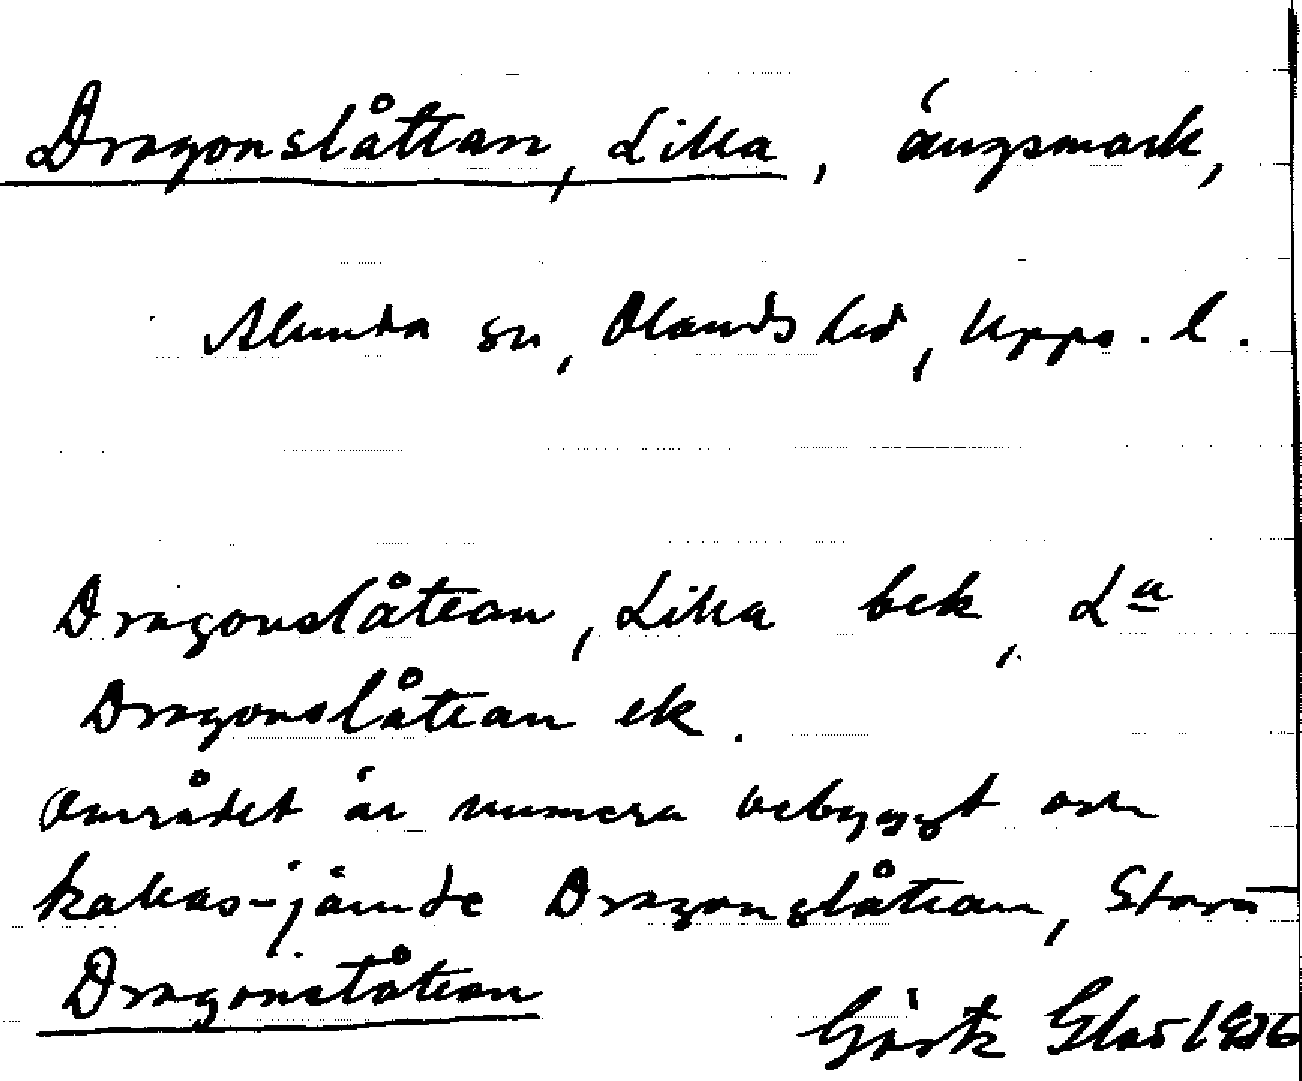 Dragonslåttan, Lilla, ängsmark,
Alunda sn, Olands hd, Upps. l.
Dragonslåttan, Lilla bek, La
Dragonslåttan ek.
Området är numera bebyggt och
kallas jämte Dragonslåttan, Stora
Dragonslåttan
Gösta